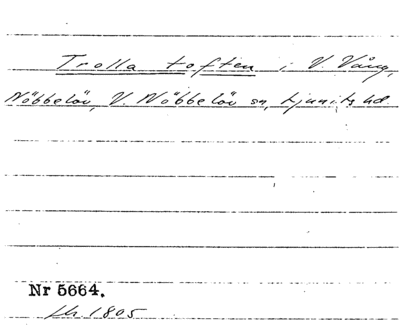 Trolla toften i V. Vång,
Nöbbelöv, V. Nöbbelöv sn, Ljunits hd.
Nr 5664.
Lh. 1805